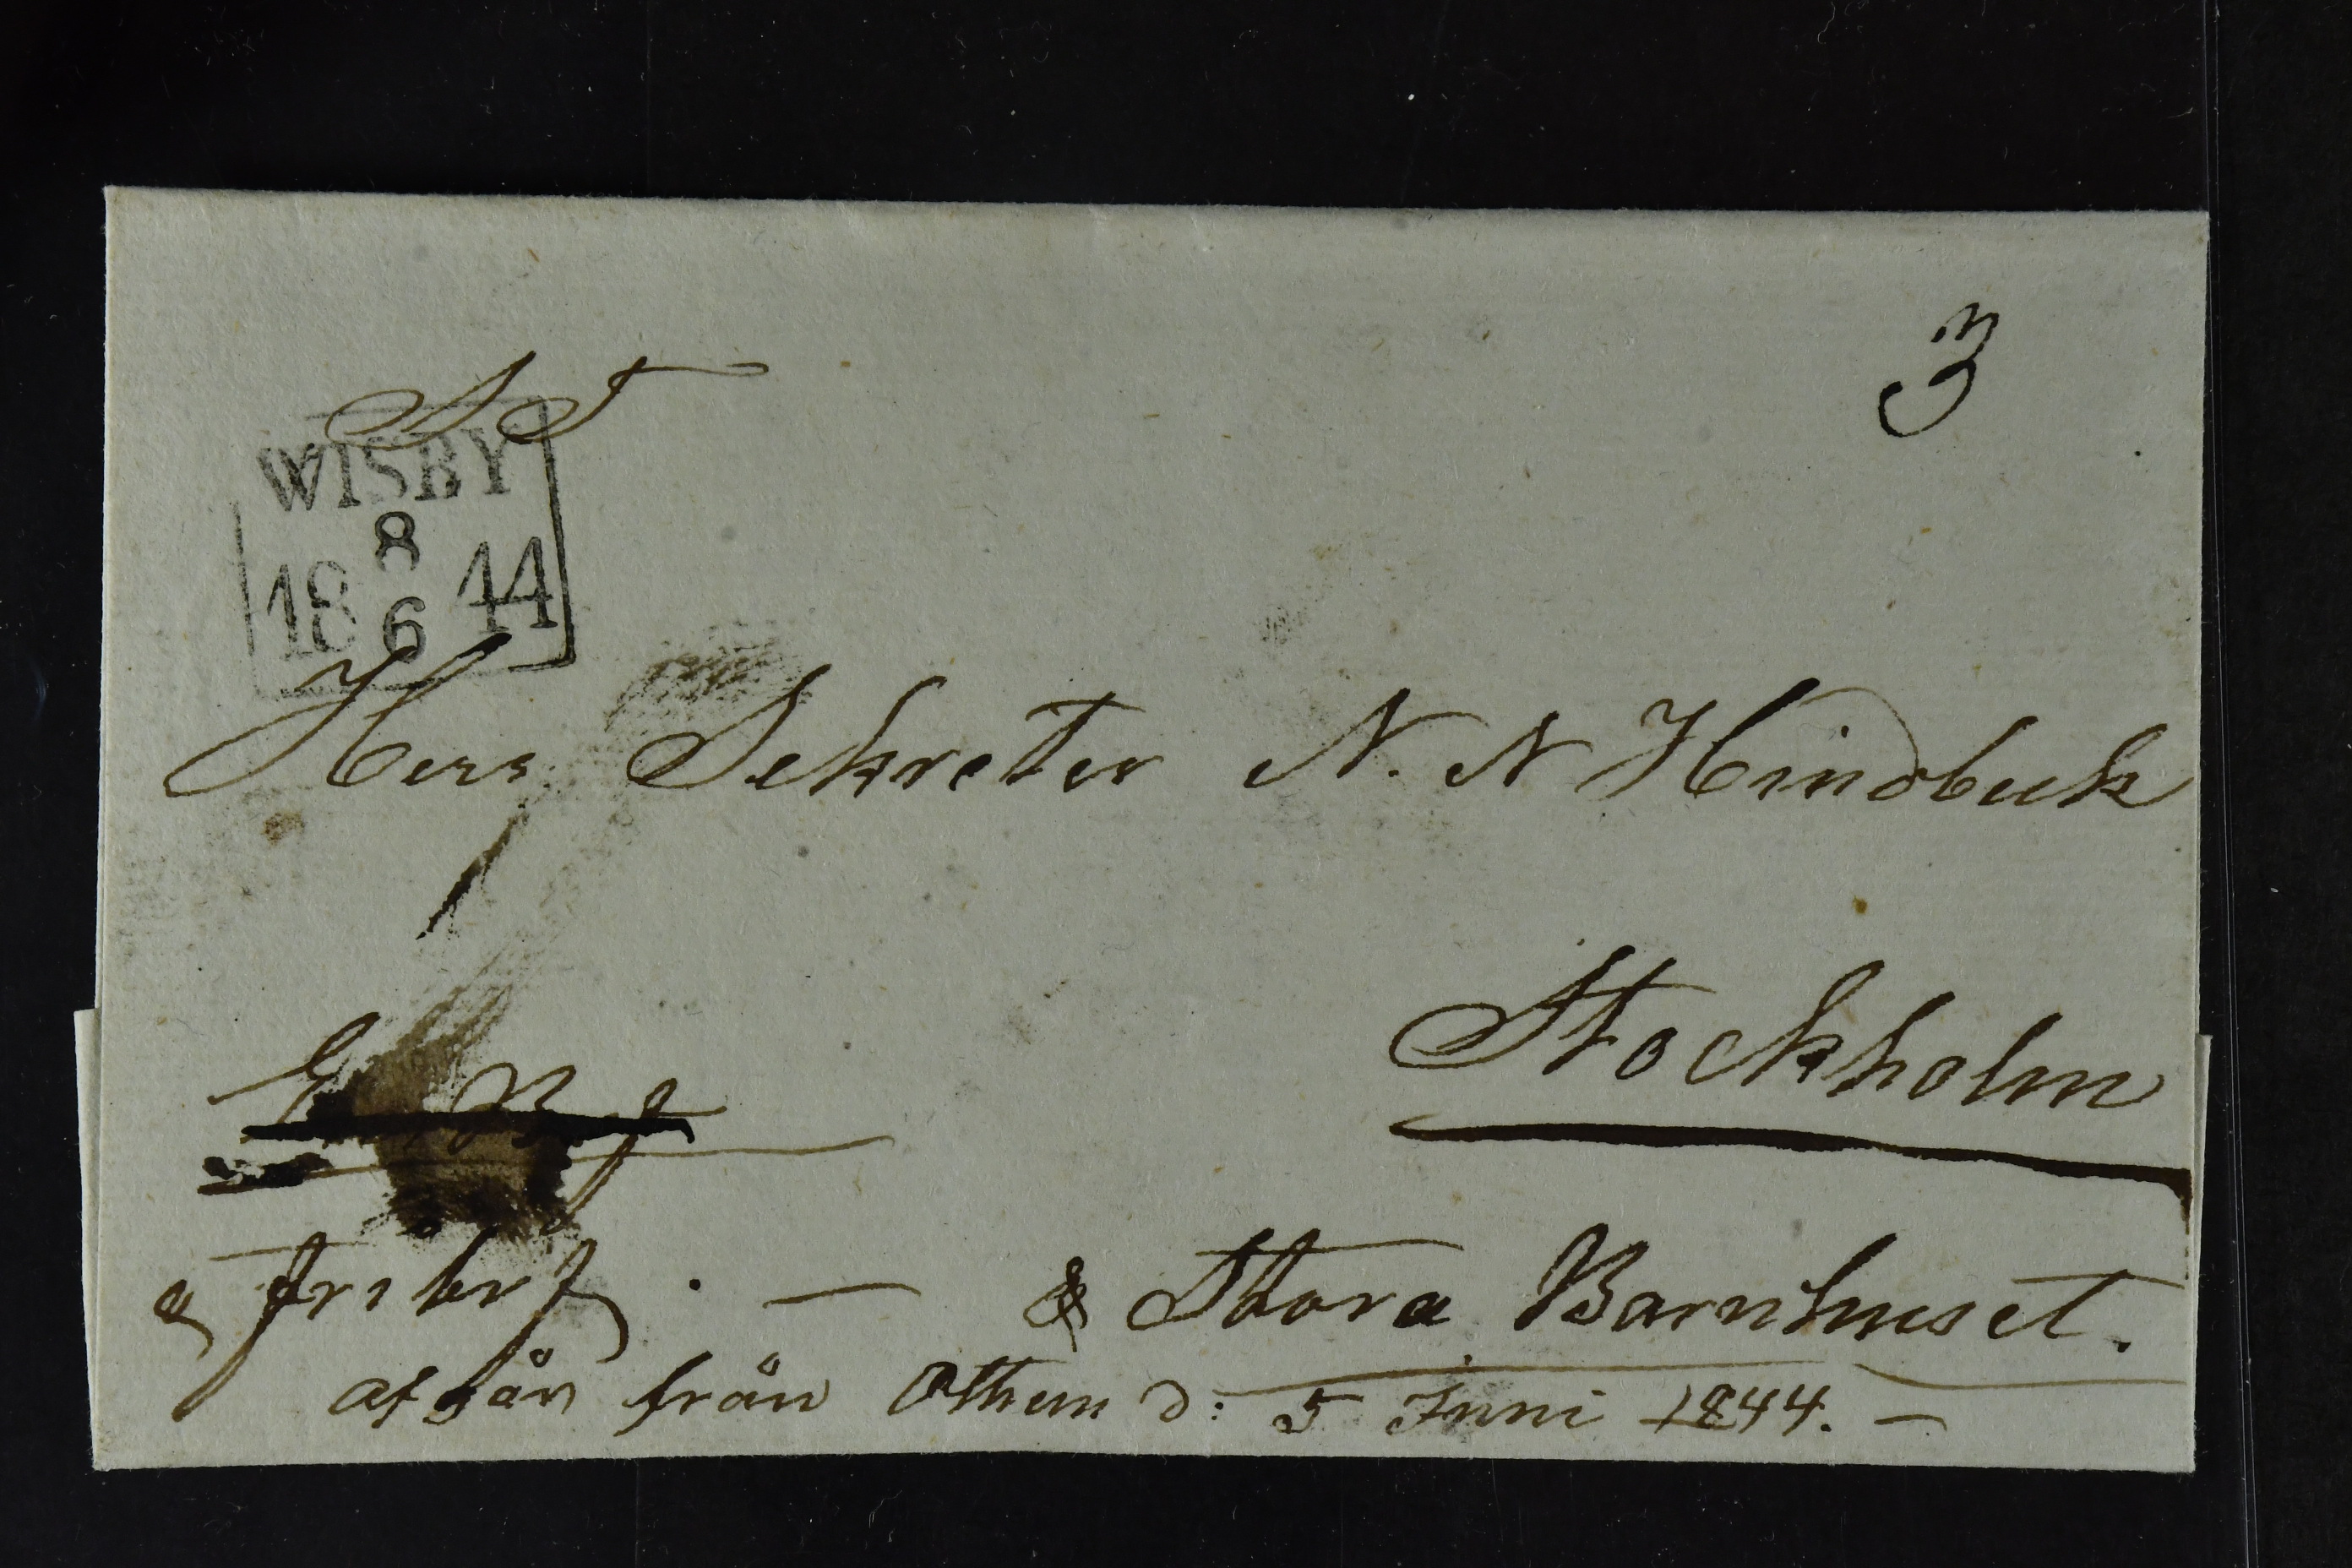 3
S T
WISBY
8
18 44
6
Herr Sekreter N. N Hindbeck
Stockholm
fribref. — & Stora Barnhuset.
afgår från Othem d: 5 Juni 1844. —